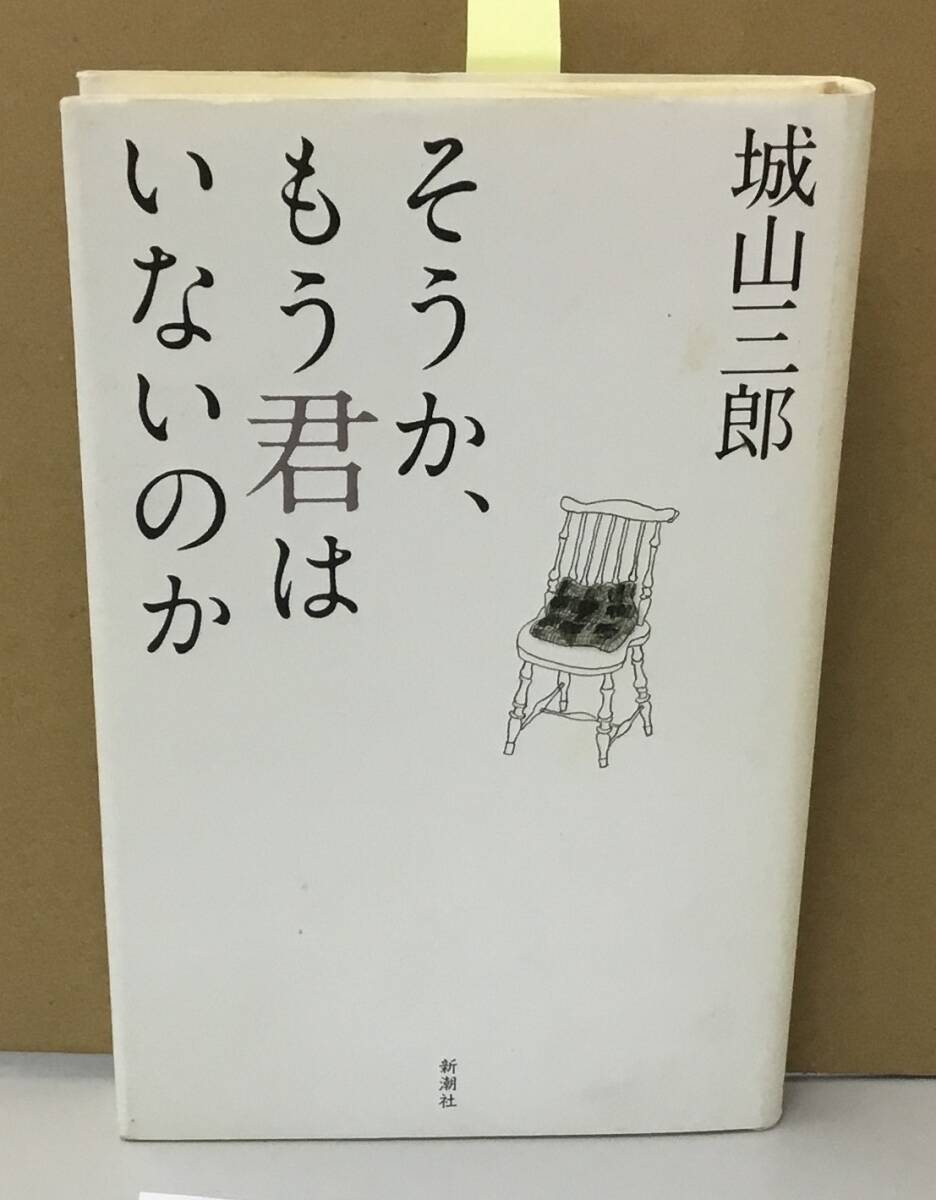 城山三郎
そうか、
もう君は
いないのか
新潮社